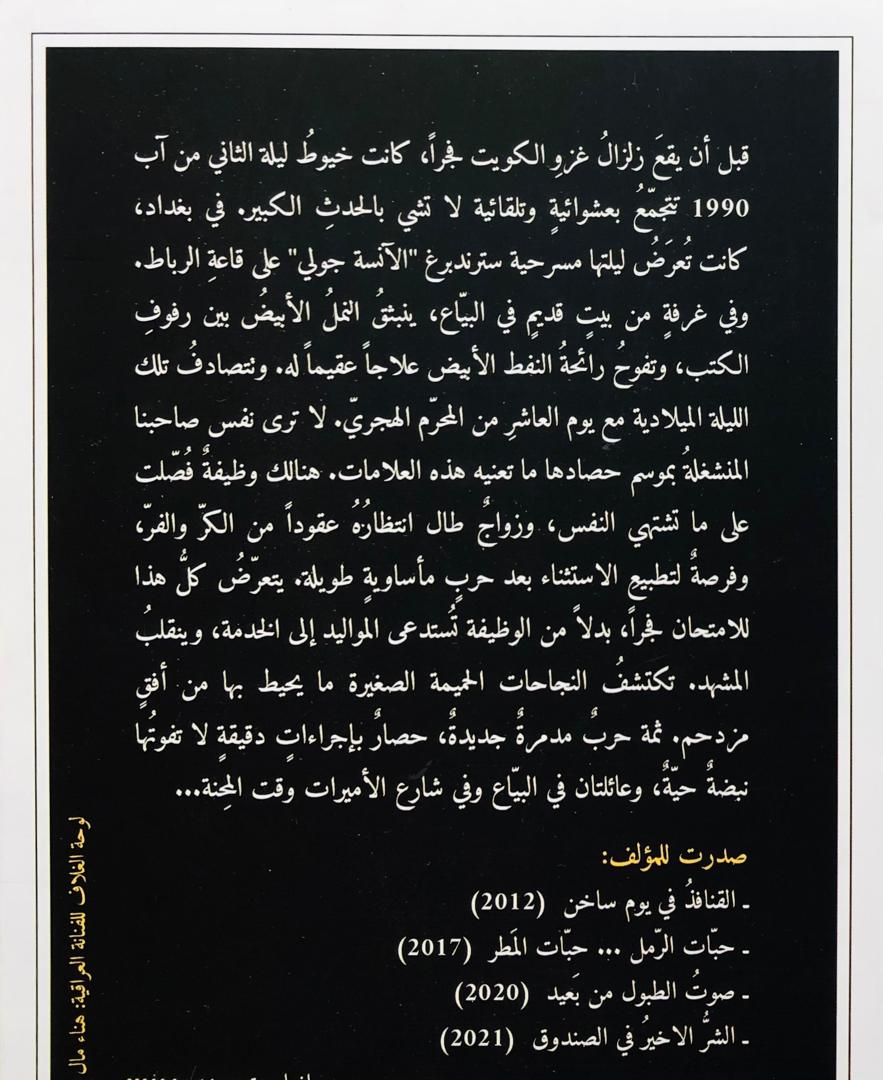 قبل أن يقعَ زلزالُ غزوِ الكويت فجراً، كانت خيوطُ ليلة الثاني من آب
1990 تتجمّعُ بعشوائيةٍ وتلقائية لا تشي بالحدثِ الكبير. في بغداد،
كانت تُعرَضُ ليلتها مسرحية سترندبرغ "الآنسة جولي" على قاعةِ الرباط.
وفي غرفةٍ من بيتٍ قديمٍ في البيّاع، ينبثقُ النملُ الأبيضُ بين رفوفِ
الكتب، وتفوحُ رائحةُ النفط الأبيض علاجاً عقيماً له. وتتصادفُ تلك
الليلة الميلادية مع يوم العاشرِ من المحرّم الهجريّ. لا ترى نفس صاحبنا
المنشغلةُ بموسم حصادها ما تعنيه هذه العلامات. هنالك وظيفةٌ فُصّلت
على ما تشتهي النفس، وزواجٌ طال انتظارُهُ عقوداً من الكرّ والفرّ،
وفرصةٌ لتطبيع الاستثناء بعد حربٍ مأساويةٍ طويلة. يتعرّضُ كلُّ هذا
للامتحان فجراً، بدلاً من الوظيفة تُستدعى المواليد إلى الخدمة، وينقلبُ
المشهد. تكتشفُ النجاحات الحميمة الصغيرة ما يحيط بها من أفقٍ
مزدحم. ثمة حربٌ مدمرةٌ جديدةٌ، حصارٌ بإجراءاتٍ دقيقةٍ لا تفوتُها
نبضةٌ حيّةٌ، وعائلتان في البيّاع وفي شارع الأميرات وقت المِحنة...
صدرت للمؤلف:
ـ القنافذُ في يوم ساخن (2012)
ـ حبّات الرّمل ... حبّات المَطر (2017)
ـ صوتُ الطبول من بَعيد (2020)
ـ الشرُّ الاخيرُ في الصندوق (2021)
لوحة الغلاف للفنانة العراقية: هناء مال